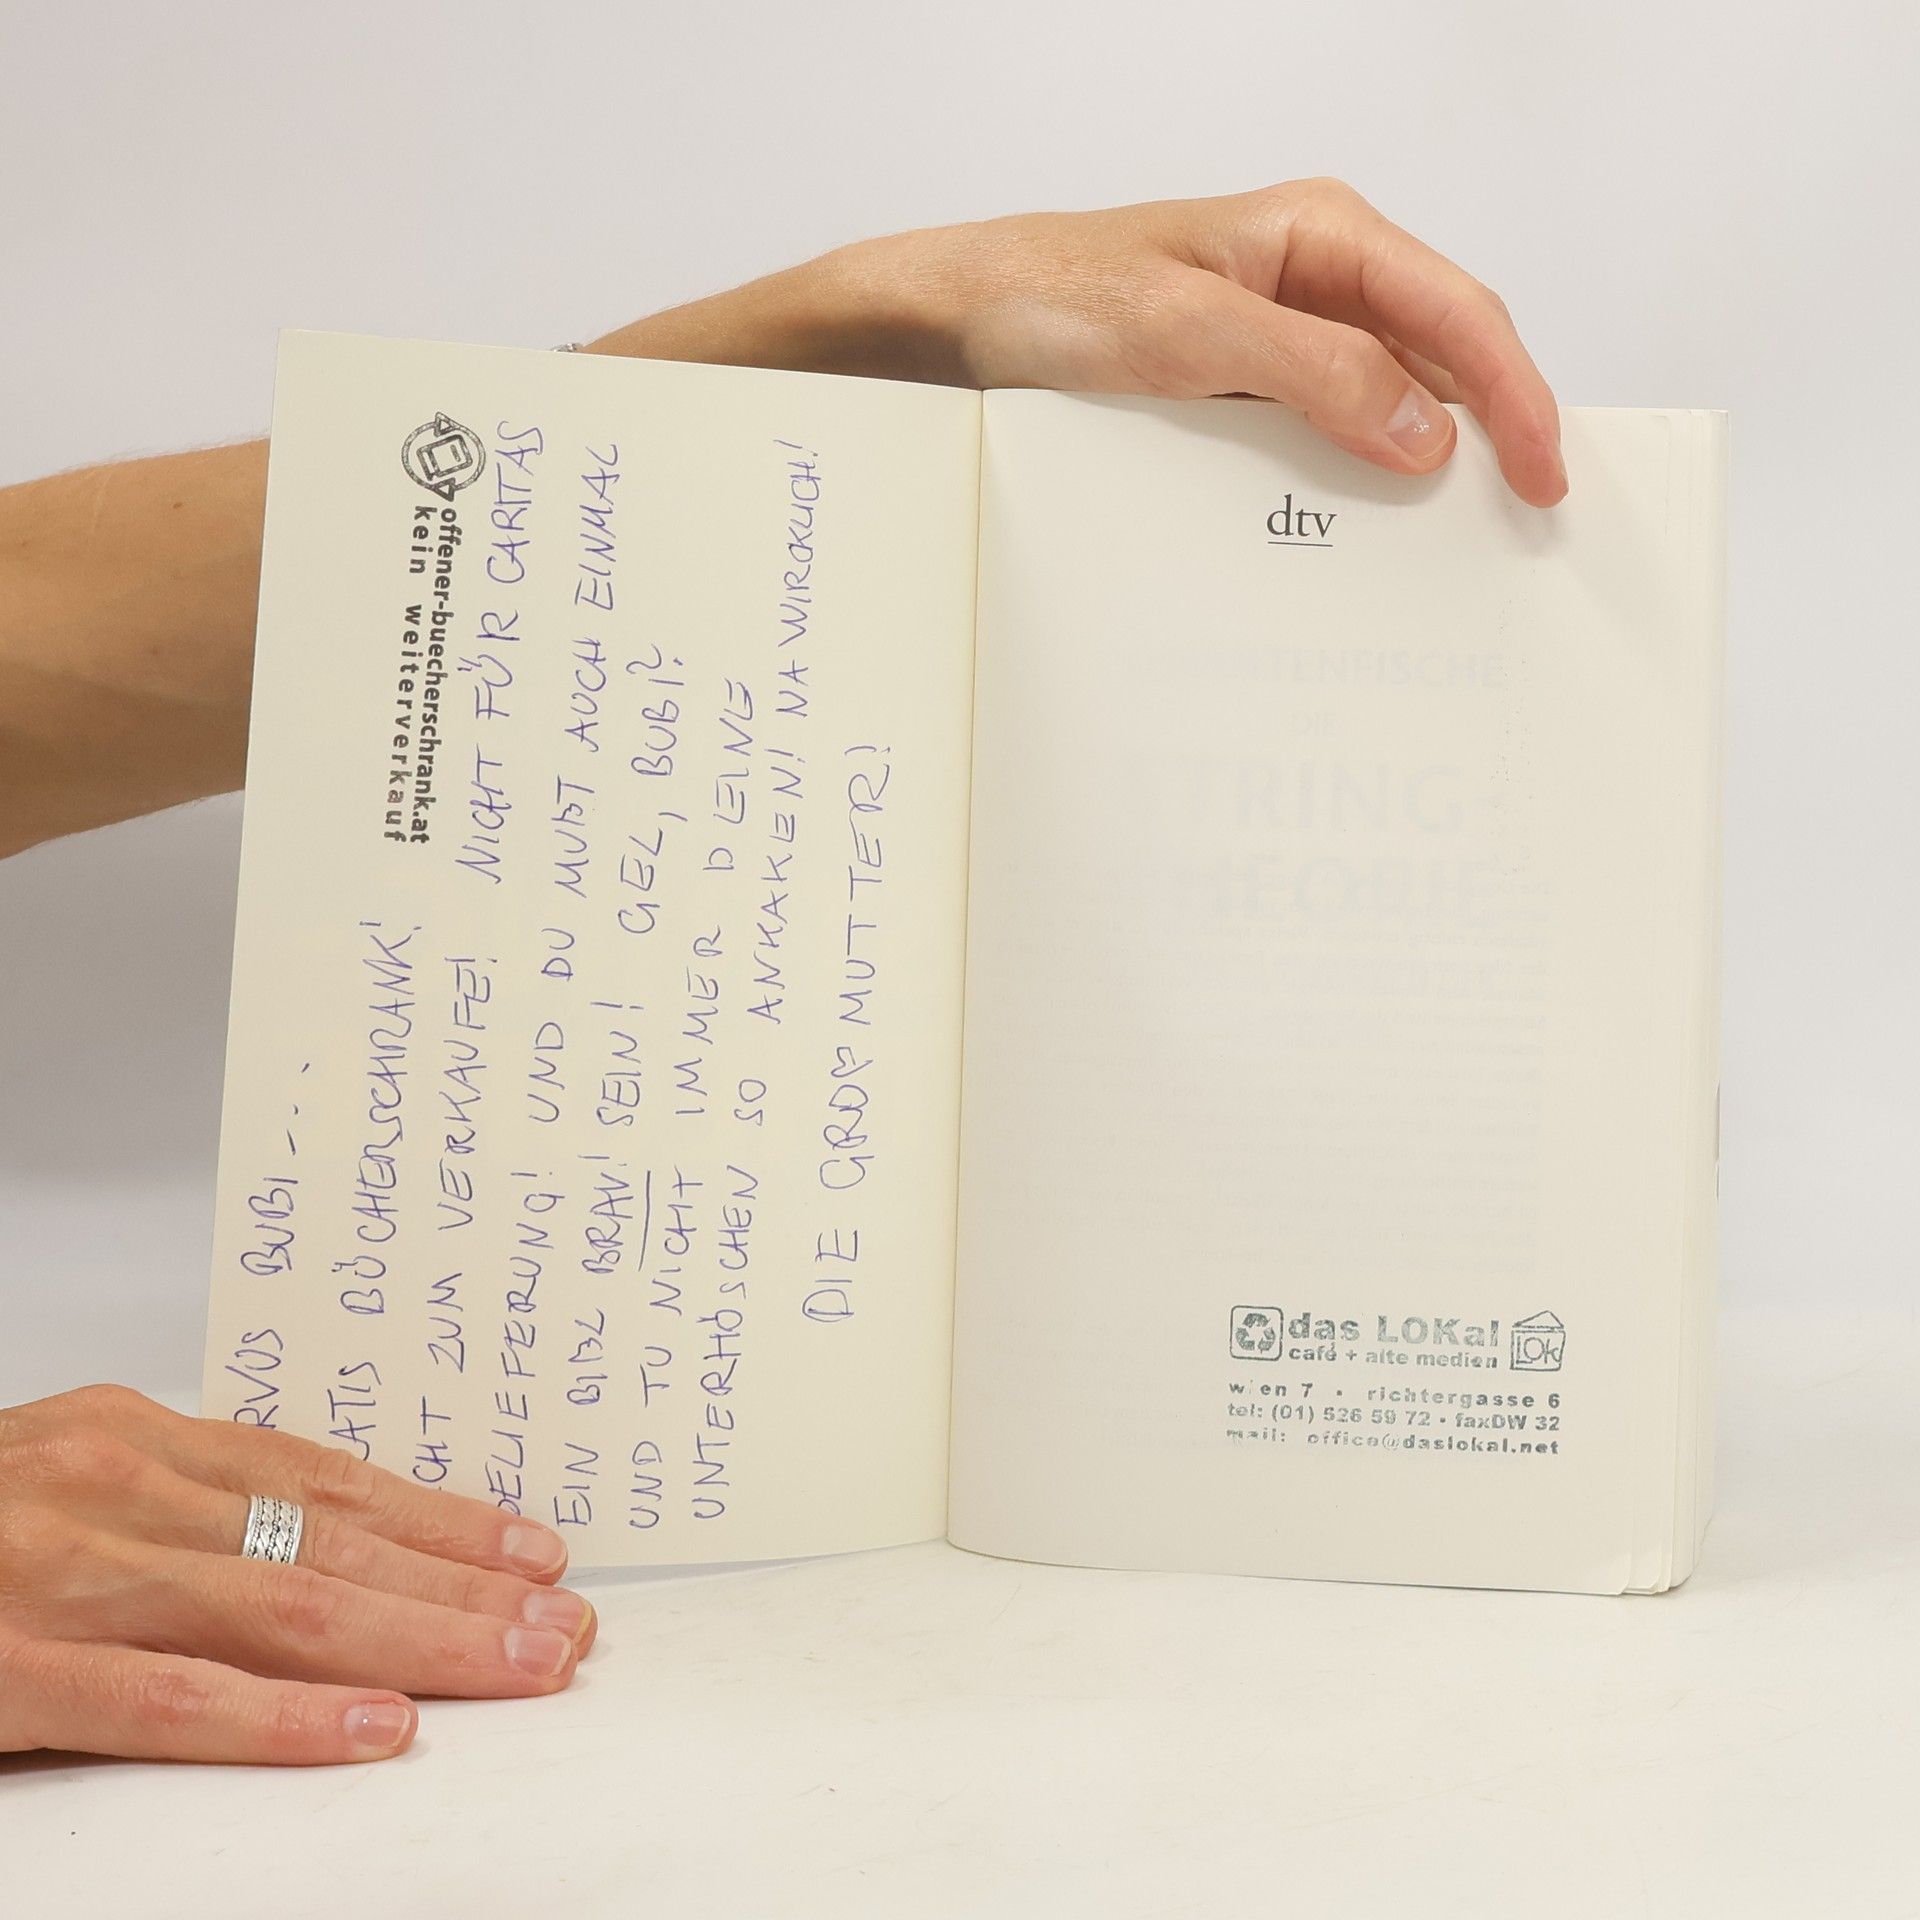 offener-buecherschrank.at
kein weiterverkauf
RVUS BUBI - - -
LATIS BÜCHERSCHRANK!
CHT ZUM VERKAUFE! NICHT FÜR CARITAS
BELIEFERUNG! UND DU MUßT AUCH EINMAL
EIN BIßL BRAV! SEIN! GEL, BUBI?
UND TU NICHT IMMER DEINE
UNTERHÖSCHEN SO ANKAKEN! NA WIRKLICH!
DIE GROßMUTTER!
dtv
das LOKal
café + alte medien
LOK
wien 7 • richtergasse 6
tel: (01) 526 59 72 • faxDW 32
mail: office@daslokal.net